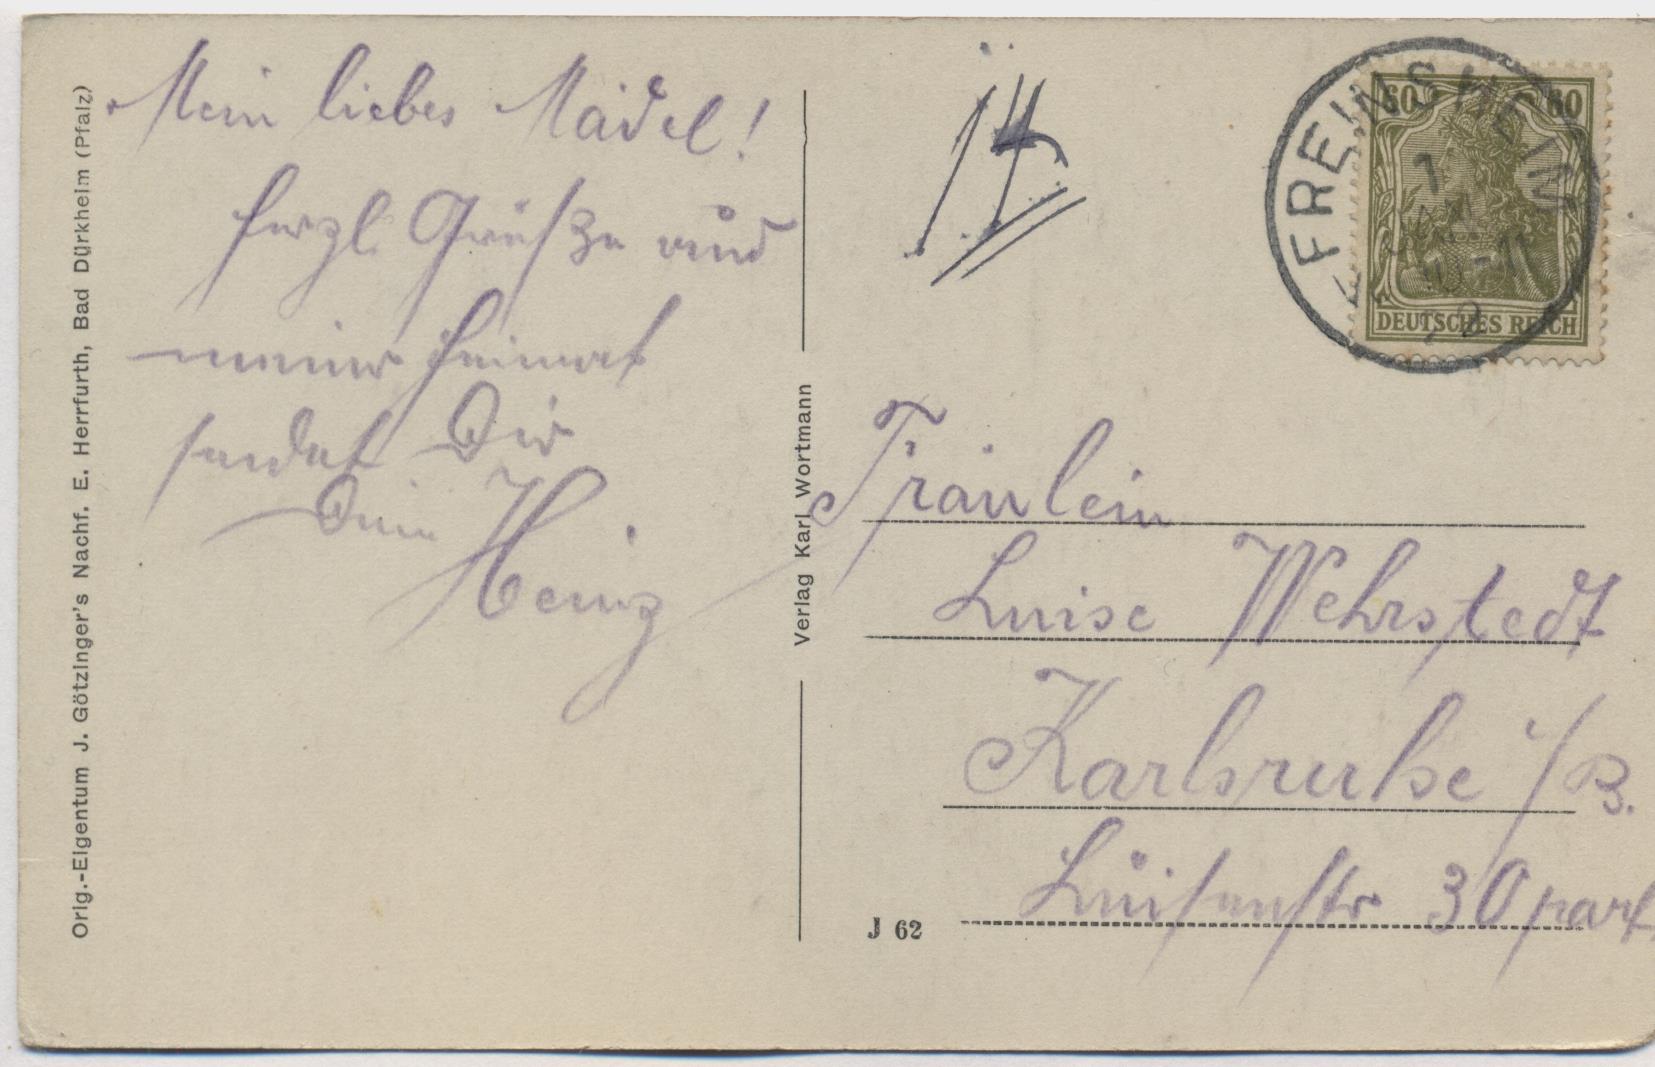 Mein liebes Mädel!
herzl. Grüße aus
meiner Heimat
sendet Dir
Dein Heinz
Orig.-Eigentum J. Götzinger's Nachf. E. Herrfurth, Bad Dürkheim (Pfalz)
Verlag Karl Wortmann
14
FREINSHEIM
7
JAN
10-11
60 60
DEUTSCHES REICH
Fräulein
Luise Wehrstedt
Karlsruhe i/B.
Luisenstr 30 part.
J 62